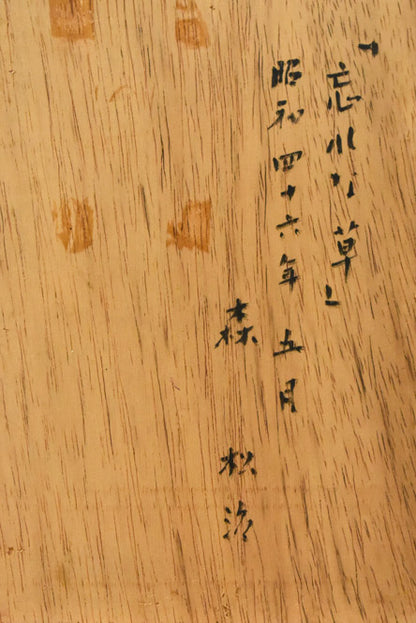 「忘れな草」
昭和四十六年五月
森 松治